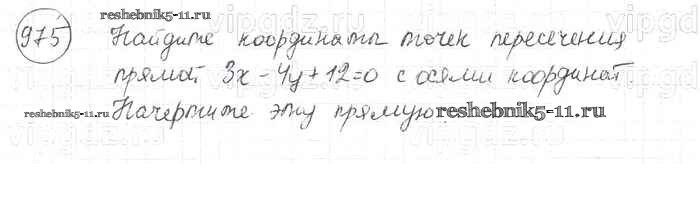 975 reshebnik5-11.ru
Найдите координаты точек пересечения
прямой 3x - 4y + 12 = 0 с осями координат
reshebnik5-11.ru Начертите эту прямую reshebnik5-11.ru